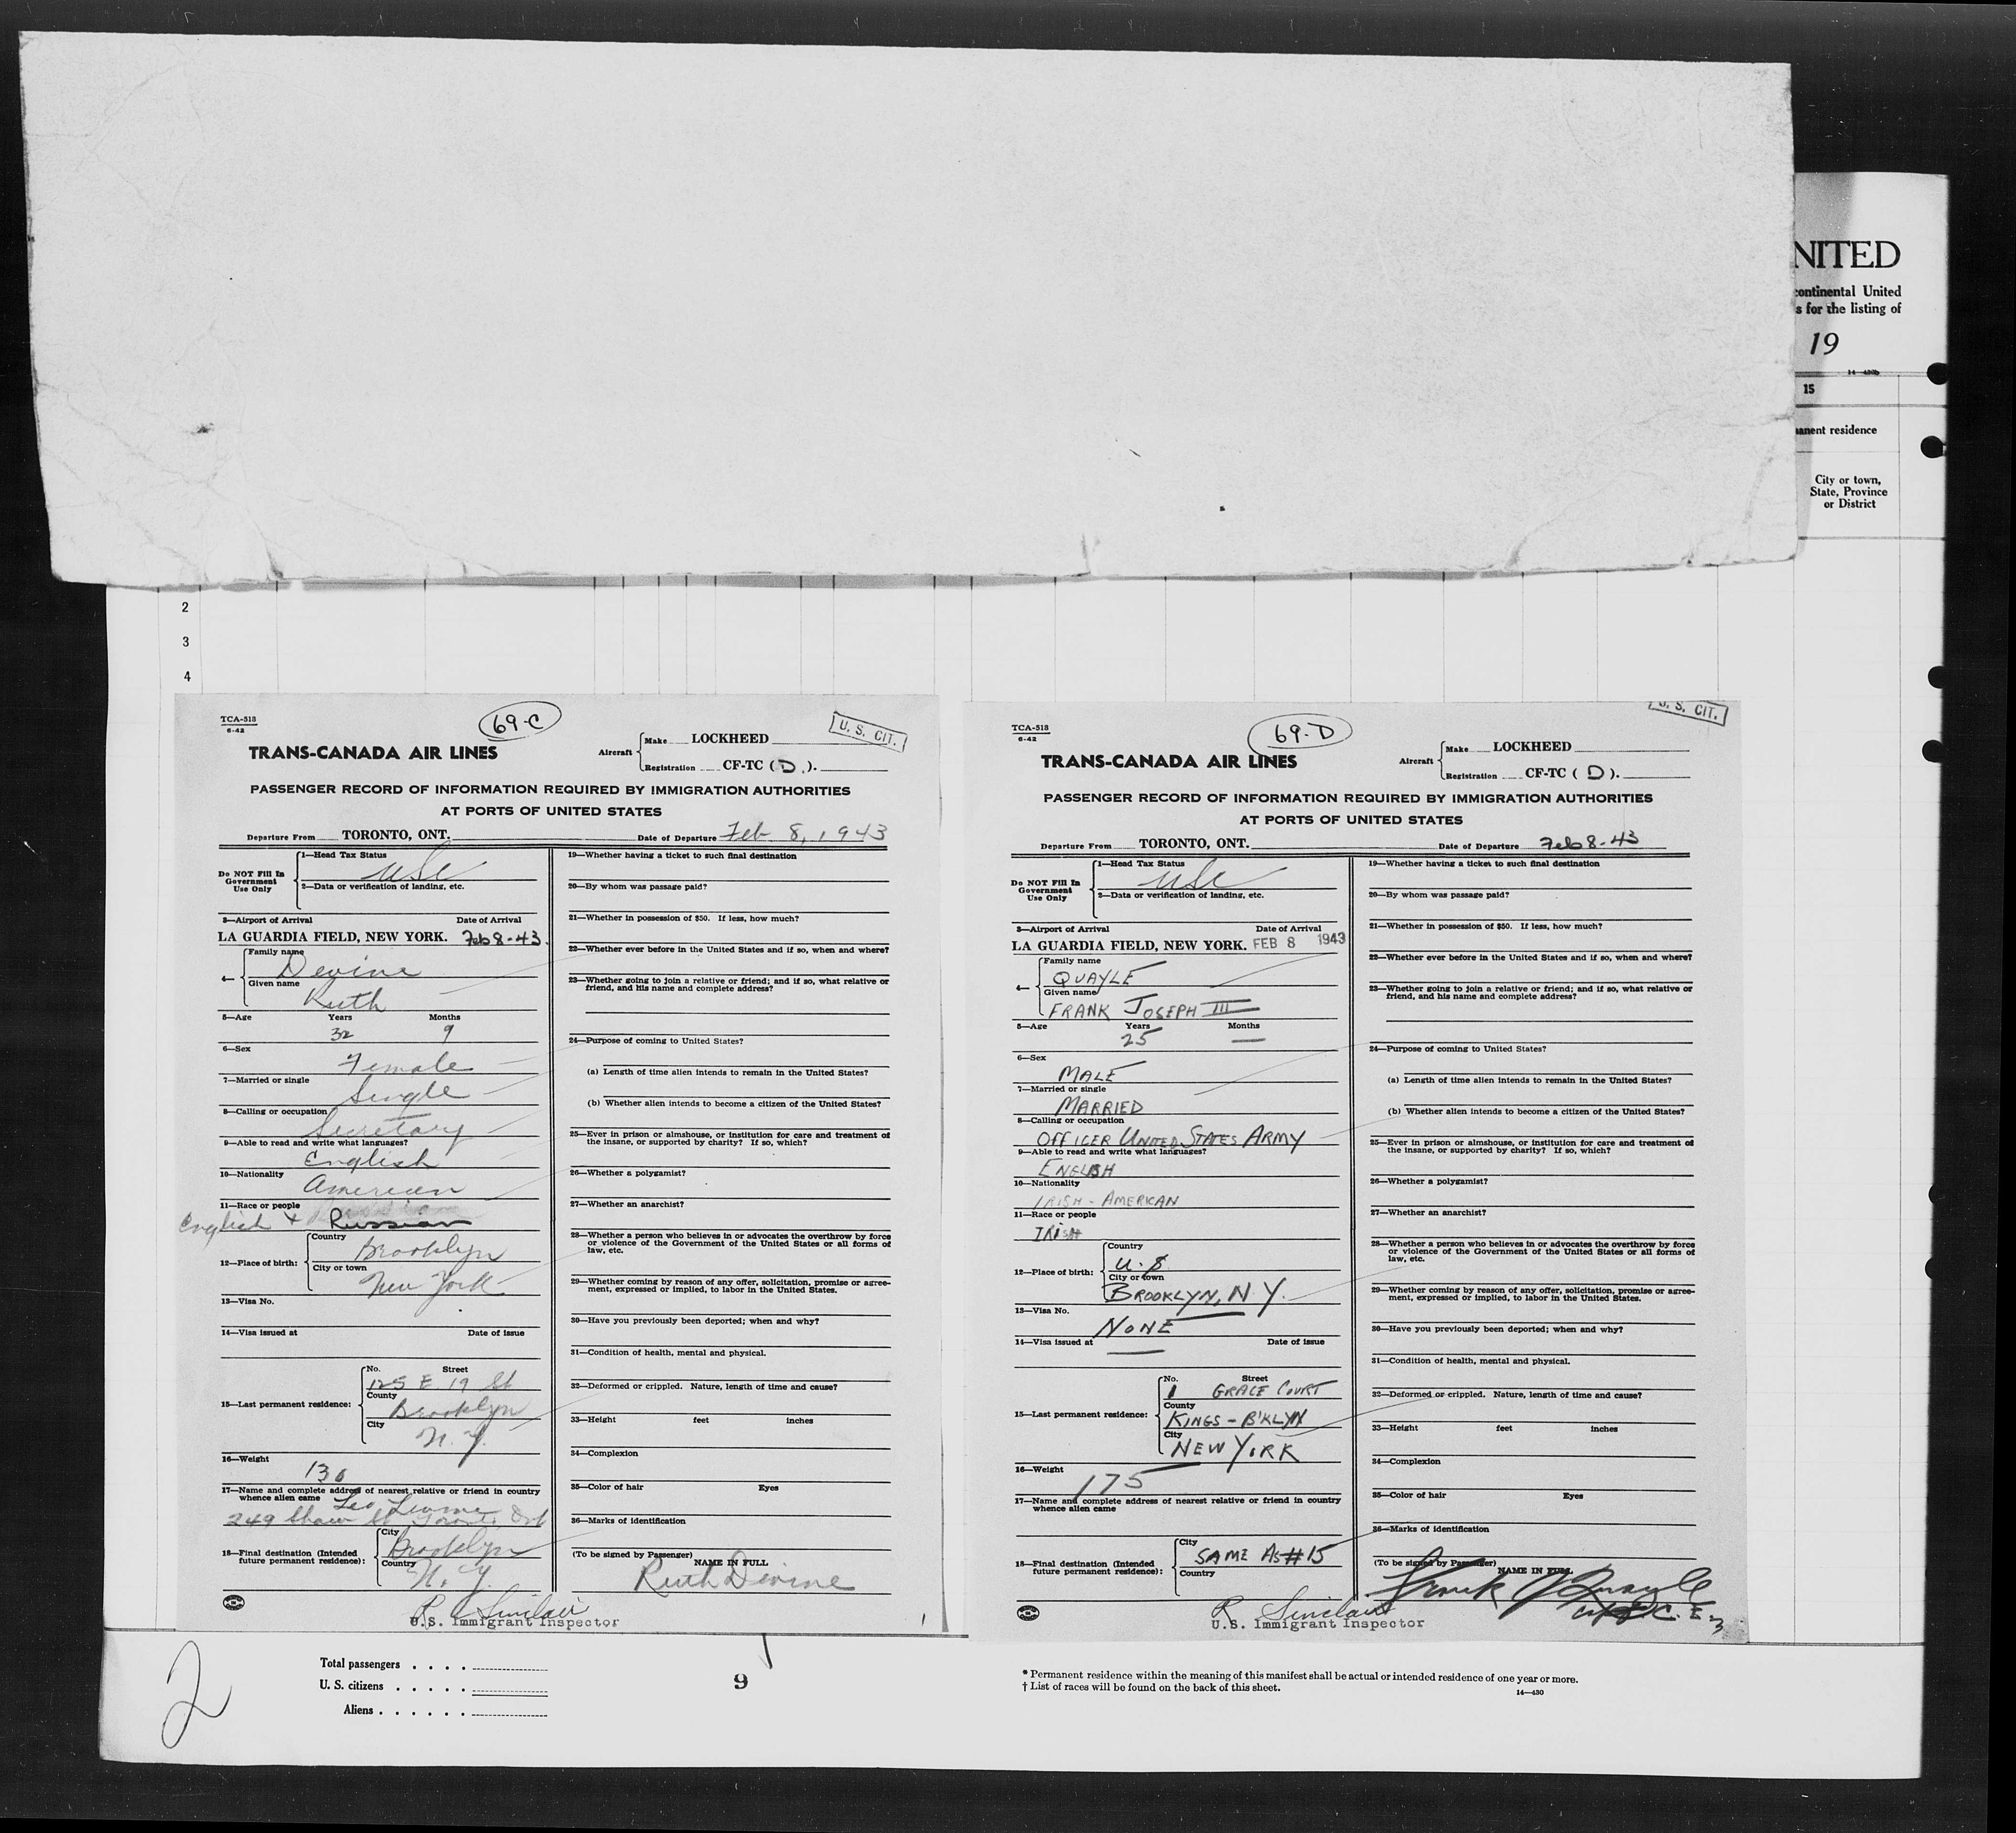 NITED
continental United
s for the listing of
19
14—430b
15
manent residence
City or town,
State, Province
or District
2
3
4
TCA-513
6-42
69-C
U. S. CIT.
TRANS-CANADA AIR LINES
Aircraft
Make LOCKHEED
Registration CF-TC (D.).
PASSENGER RECORD OF INFORMATION REQUIRED BY IMMIGRATION AUTHORITIES
AT PORTS OF UNITED STATES
Departure From TORONTO, ONT. Date of Departure Feb 8, 1943
Do NOT Fill In
Government
Use Only
1—Head Tax Status
USC
2—Data or verification of landing, etc.
3—Airport of Arrival Date of Arrival
LA GUARDIA FIELD, NEW YORK. Feb 8-43.
4—
Family name
Devine
Given name
Ruth
5—Age Years Months
32 9
6—Sex
Female
7—Married or single
Single
8—Calling or occupation
Secretary
9—Able to read and write what languages?
English
10—Nationality
American
11—Race or people
English + Russian
12—Place of birth:
Country
Brooklyn
City or town
New York
13—Visa No.
14—Visa issued at Date of issue
15—Last permanent residence:
No. Street
125 E 19 St
County
Brooklyn
City
N. Y.
16—Weight
130
17—Name and complete address of nearest relative or friend in country
whence alien came Leo
249 Shaw St Toronto Ont
18—Final destination (Intended
future permanent residence):
City
Brooklyn
Country
N. Y.
19—Whether having a ticket to such final destination
20—By whom was passage paid?
21—Whether in possession of $50. If less, how much?
22—Whether ever before in the United States and if so, when and where?
23—Whether going to join a relative or friend; and if so, what relative or
friend, and his name and complete address?
24—Purpose of coming to United States?
(a) Length of time alien intends to remain in the United States?
(b) Whether alien intends to become a citizen of the United States?
25—Ever in prison or almshouse, or institution for care and treatment of
the insane, or supported by charity? If so, which?
26—Whether a polygamist?
27—Whether an anarchist?
28—Whether a person who believes in or advocates the overthrow by force
or violence of the Government of the United States or all forms of
law, etc.
29—Whether coming by reason of any offer, solicitation, promise or agree-
ment, expressed or implied, to labor in the United States.
30—Have you previously been deported; when and why?
31—Condition of health, mental and physical.
32—Deformed or crippled. Nature, length of time and cause?
33—Height feet inches
34—Complexion
35—Color of hair Eyes
36—Marks of identification
(To be signed by Passenger)
NAME IN FULL
Ruth Devine
R Sinclair
U.S. Immigrant Inspector
TCA-513
6-42
69-D
U. S. CIT.
TRANS-CANADA AIR LINES
Aircraft
Make LOCKHEED
Registration CF-TC ( D ).
PASSENGER RECORD OF INFORMATION REQUIRED BY IMMIGRATION AUTHORITIES
AT PORTS OF UNITED STATES
Departure From TORONTO, ONT. Date of Departure Feb 8-43
Do NOT Fill In
Government
Use Only
1—Head Tax Status
USC
2—Data or verification of landing, etc.
3—Airport of Arrival Date of Arrival
LA GUARDIA FIELD, NEW YORK. FEB 8 1943
4—
Family name
QUAYLE
Given name
FRANK JOSEPH III
5—Age Years Months
25 —
6—Sex
MALE
7—Married or single
MARRIED
8—Calling or occupation
OFFICER UNITED STATES ARMY
9—Able to read and write what languages?
ENGLISH
10—Nationality
IRISH - AMERICAN
11—Race or people
IRISH
12—Place of birth:
Country
U. S.
City or town
BROOKLYN, N.Y.
13—Visa No.
NONE
14—Visa issued at Date of issue
15—Last permanent residence:
No. Street
1 GRACE COURT
County
KINGS - B'KLYN
City
NEW YORK
16—Weight
175
17—Name and complete address of nearest relative or friend in country
whence alien came
18—Final destination (Intended
future permanent residence):
City
SAME AS #15
Country
19—Whether having a ticket to such final destination
20—By whom was passage paid?
21—Whether in possession of $50. If less, how much?
22—Whether ever before in the United States and if so, when and where?
23—Whether going to join a relative or friend; and if so, what relative or
friend, and his name and complete address?
24—Purpose of coming to United States?
(a) Length of time alien intends to remain in the United States?
(b) Whether alien intends to become a citizen of the United States?
25—Ever in prison or almshouse, or institution for care and treatment of
the insane, or supported by charity? If so, which?
26—Whether a polygamist?
27—Whether an anarchist?
28—Whether a person who believes in or advocates the overthrow by force
or violence of the Government of the United States or all forms of
law, etc.
29—Whether coming by reason of any offer, solicitation, promise or agree-
ment, expressed or implied, to labor in the United States.
30—Have you previously been deported; when and why?
31—Condition of health, mental and physical.
32—Deformed or crippled. Nature, length of time and cause?
33—Height feet inches
34—Complexion
35—Color of hair Eyes
36—Marks of identification
(To be signed by Passenger)
NAME IN FULL
Frank J Quayle
R Sinclair
U.S. Immigrant Inspector
2
Total passengers . . . .
U. S. citizens . . . . .
Aliens . . . . . .
9
* Permanent residence within the meaning of this manifest shall be actual or intended residence of one year or more.
† List of races will be found on the back of this sheet.
14—430